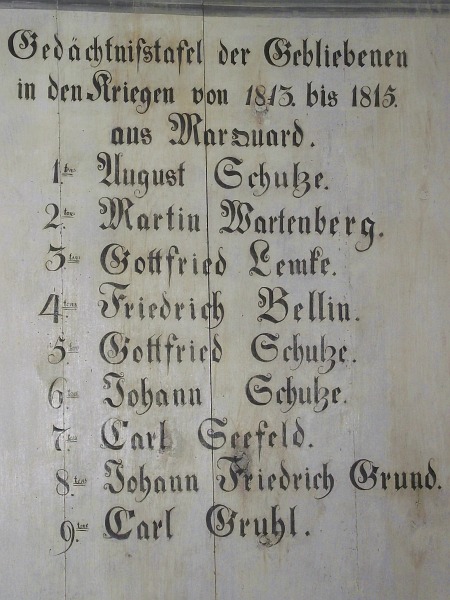 Gedächtnißtafel der Gebliebenen
in den Kriegen von 1813. bis 1815.
aus Marquard.
1. August Schulze.
2. Martin Wartenberg.
3. Gottfried Lemke.
4. Friedrich Bellin.
5. Gottfried Schulze.
6. Johann Schulze.
7. Carl Seefeld.
8. Johann Friedrich Grund.
9. Carl Gruhl.